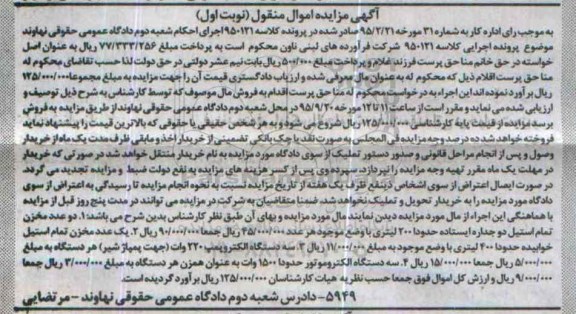 آگهی مزایده اموال منقول (نوبت اول)
به موجب رای اداره کار به شماره ۳۱ مورخه ۹۵/۲/۲۱ صادر شده در پرونده کلاسه ۹۵۰۱۲۱ اجرای احکام شعبه دوم دادگاه عمومی حقوقی نهاوند
موضوع پرونده اجرایی کلاسه ۹۵۰۱۲۱ شرکت فرآورده های لبنی ناون محکوم است به پرداخت مبلغ ۷۷/۳۳۳/۲۵۶ ریال به عنوان اصل
خواسته در حق خانم منا حق پرست فرزند غلام و پرداخت مبلغ ۵۰۰/۰۰۰ ریال بابت نیم عشر دولتی در حق دولت لذا حسب تقاضای محکوم له
منا حق پرست اقلام ذیل که محکوم له به عنوان مال معرفی شده و ارزیاب دادگستری قیمت آن را جهت مزایده به مبلغ مجموعا ۱۳۵/۰۰۰/۰۰۰
ریال برآورد نموده اند این اجراء به درخواست محکوم له منا حق پرست اقدام به فروش مال موصوف که توسط کارشناس به شرح ذیل توصیف و
ارزیابی شده می نماید و مقرر است از ساعت ۱۱ تا ۱۲ مورخه ۹۵/۹/۲۰ در محل شعبه دوم دادگاه عمومی حقوقی نهاوند از طریق مزایده به فروش
برسد مزایده از قیمت پایه کارشناسی ۱۳۵/۰۰۰/۰۰۰ ریال شروع می شود و به هر شخص حقیقی یا حقوقی که بالاترین قیمت را پیشنهاد نماید
فروخته خواهد شد ده درصد وجه مزایده فی المجلس به صورت نقد یا چک بانکی تضمینی از خریدار اخذ و مابقی ظرف مدت یک ماه از خریدار
وصول و پس از انجام مراحل قانونی و صدور دستور تملیک از سوی دادگاه مورد مزایده به نام خریدار منتقل خواهد شد در صورتی که خریدار
در مهلت یک ماه مقرر بقیه وجه مزایده را نپردازد، سپرده وی پس از کسر هزینه های مزایده به نفع دولت ضبط و مزایده تجدید می گردد
در صورت ایصال اعتراض از سوی اشخاص ذینفع ظرف یک هفته از تاریخ مزایده نسبت به نحوه انجام مزایده تا رسیدگی به اعتراض از سوی
دادگاه مورد مزایده را به خریدار تحویل و تملیک نخواهد شد، ضمنا متقاضیان به شرکت در مزایده می توانند در مدت پنج روز قبل از مزایده
با هماهنگی این اجراء از مال مورد مزایده دیدن نمایند مال مورد مزایده و بهای آن طبق نظر کارشناس بدین شرح می باشد: ۱. دو عدد مخزن
تمام استیل دو جداره ایستاده حدودا ۲۰۰ لیتری با وضع موجود هر عدد ۴۵/۰۰۰/۰۰۰ ریال جمعا ۹۰/۰۰۰/۰۰۰ ریال ۲. یک عدد مخزن تمام استیل
خوابیده حدودا ۴۰۰ لیتری با وضع موجود به مبلغ ۱۱/۰۰۰/۰۰۰ ریال ۳. سه دستگاه الکتروپمپ ۲۲۰ وات (جهت پمپاژ شیر) هر دستگاه به مبلغ
۵/۰۰۰/۰۰۰ ریال جمعا ۱۵/۰۰۰/۰۰۰ ریال ۴. سه دستگاه الکتروموتور حدودا ۱۵۰۰ وات به عنوان همزن هر دستگاه به مبلغ ۳/۰۰۰/۰۰۰ ریال جمعا
۹/۰۰۰/۰۰۰ ریال و ارزش کل اموال فوق جمعا حسب نظریه هیات کارشناسان ۱۳۵/۰۰۰/۰۰۰ ریال برآورد گردیده است.
۵۹۴۹- دادرس شعبه دوم دادگاه عمومی حقوقی نهاوند - مرتضایی